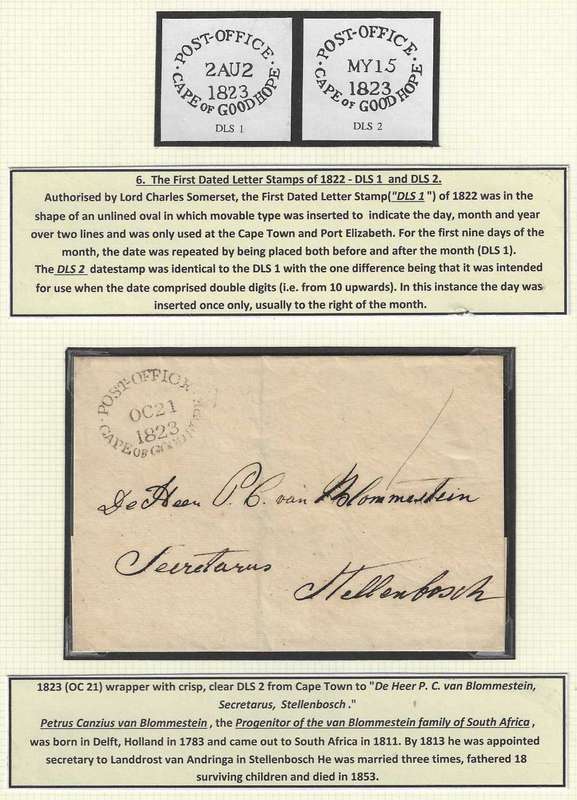 · POST-OFFICE ·
2AU2
1823
CAPE OF GOOD HOPE
DLS 1
· POST-OFFICE ·
MY15
1823
CAPE OF GOOD HOPE
DLS 2
6. The First Dated Letter Stamps of 1822 - DLS 1 and DLS 2.
Authorised by Lord Charles Somerset, the First Dated Letter Stamp("DLS 1") of 1822 was in the
shape of an unlined oval in which movable type was inserted to indicate the day, month and year
over two lines and was only used at the Cape Town and Port Elizabeth. For the first nine days of the
month, the date was repeated by being placed both before and after the month (DLS 1).
The DLS 2 datestamp was identical to the DLS 1 with the one difference being that it was intended
for use when the date comprised double digits (i.e. from 10 upwards). In this instance the day was
inserted once only, usually to the right of the month.
· POST-OFFICE
OC21
1823
· CAPE OF GOOD HOPE
De Heer P. C. van Blommestein
Secretarus
Stellenbosch
1823 (OC 21) wrapper with crisp, clear DLS 2 from Cape Town to "De Heer P. C. van Blommestein,
Secretarus, Stellenbosch."
Petrus Canzius van Blommestein, the Progenitor of the van Blommestein family of South Africa,
was born in Delft, Holland in 1783 and came out to South Africa in 1811. By 1813 he was appointed
secretary to Landdrost van Andringa in Stellenbosch He was married three times, fathered 18
surviving children and died in 1853.